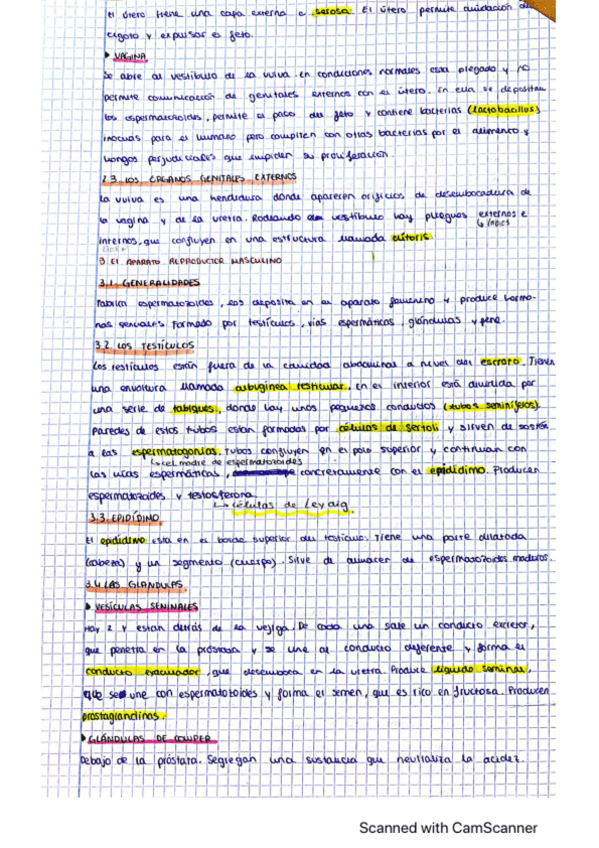 el útero tiene una capa externa o serosa. El útero permite anidación del
cigoto y expulsar es feto.
▶ VAGINA
Se abre al vestíbulo de la vulva. en condiciones normales esta plegado y no
permite comunicación de genitales externos con el útero. En ella se depositan
los espermatozoides, permite el paso del feto y contiene bacterias (lactobacillus)
inocuas para el humano pero compiten con otras bacterias por el alimento y
hongos perjudiciales que impiden su proliferación.
2.3. LOS ÓRGANOS GENITALES EXTERNOS
La vulva es una hendidura donde aparecen orificios de desembocadura de
la vagina y de la uretra. Rodeando vestíbulo hay pliegues externos e
↳ labios
internos, que confluyen en una estructura llamada clítoris.
3. El APARATO REPRODUCTOR MASCULINO
3.1. GENERALIDADES
Fabrica espermatozoides, los deposita en el aparato femenino y produce hormo-
nas sexuales. Formado por testículos, vías espermáticas, glándulas y pene.
3.2. LOS TESTÍCULOS
Los testículos están fuera de la cavidad abdominal a nivel del escroto. Tienen
una envoltura llamada albugínea testicular, en el interior está dividida por
una serie de tabiques, donde hay unos pequeños conductos (tubos seminíferos).
Paredes de estos tubos estan formadas por células de Sertoli y sirven de sostén
a las espermatogonias. Tubos confluyen en el polo superior y continuan con
↳ cel. madre de espermatozoides
las vías espermáticas, concretamente con el epidídimo. Producen
espermatozoides y testosterona.
↳ células de Leydig.
3.3. EPIDÍDIMO
El epidídimo esta en el borde superior del testículo. Tiene una parte dilatada
(cabeza) y un segmento (cuerpo). Sirve de almacen de espermatozoides maduros.
3.4 LAS GLÁNDULAS
▶ VESÍCULAS SEMINALES
Hay 2 y estan detrás de la vejiga. De cada una sale un conducto excretor,
que penetra en la próstata y se une al conducto deferente y forma el
conducto eyaculador, que desemboca en la uretra. Produce líquido seminal,
que se une con espermatozoides y forma el semen, que es rico en fructosa. Producen
prostaglandinas.
▶ GLÁNDULAS DE COWPER
Debajo de la próstata. Segregan una sustancia que neutraliza la acidez.
Scanned with CamScanner